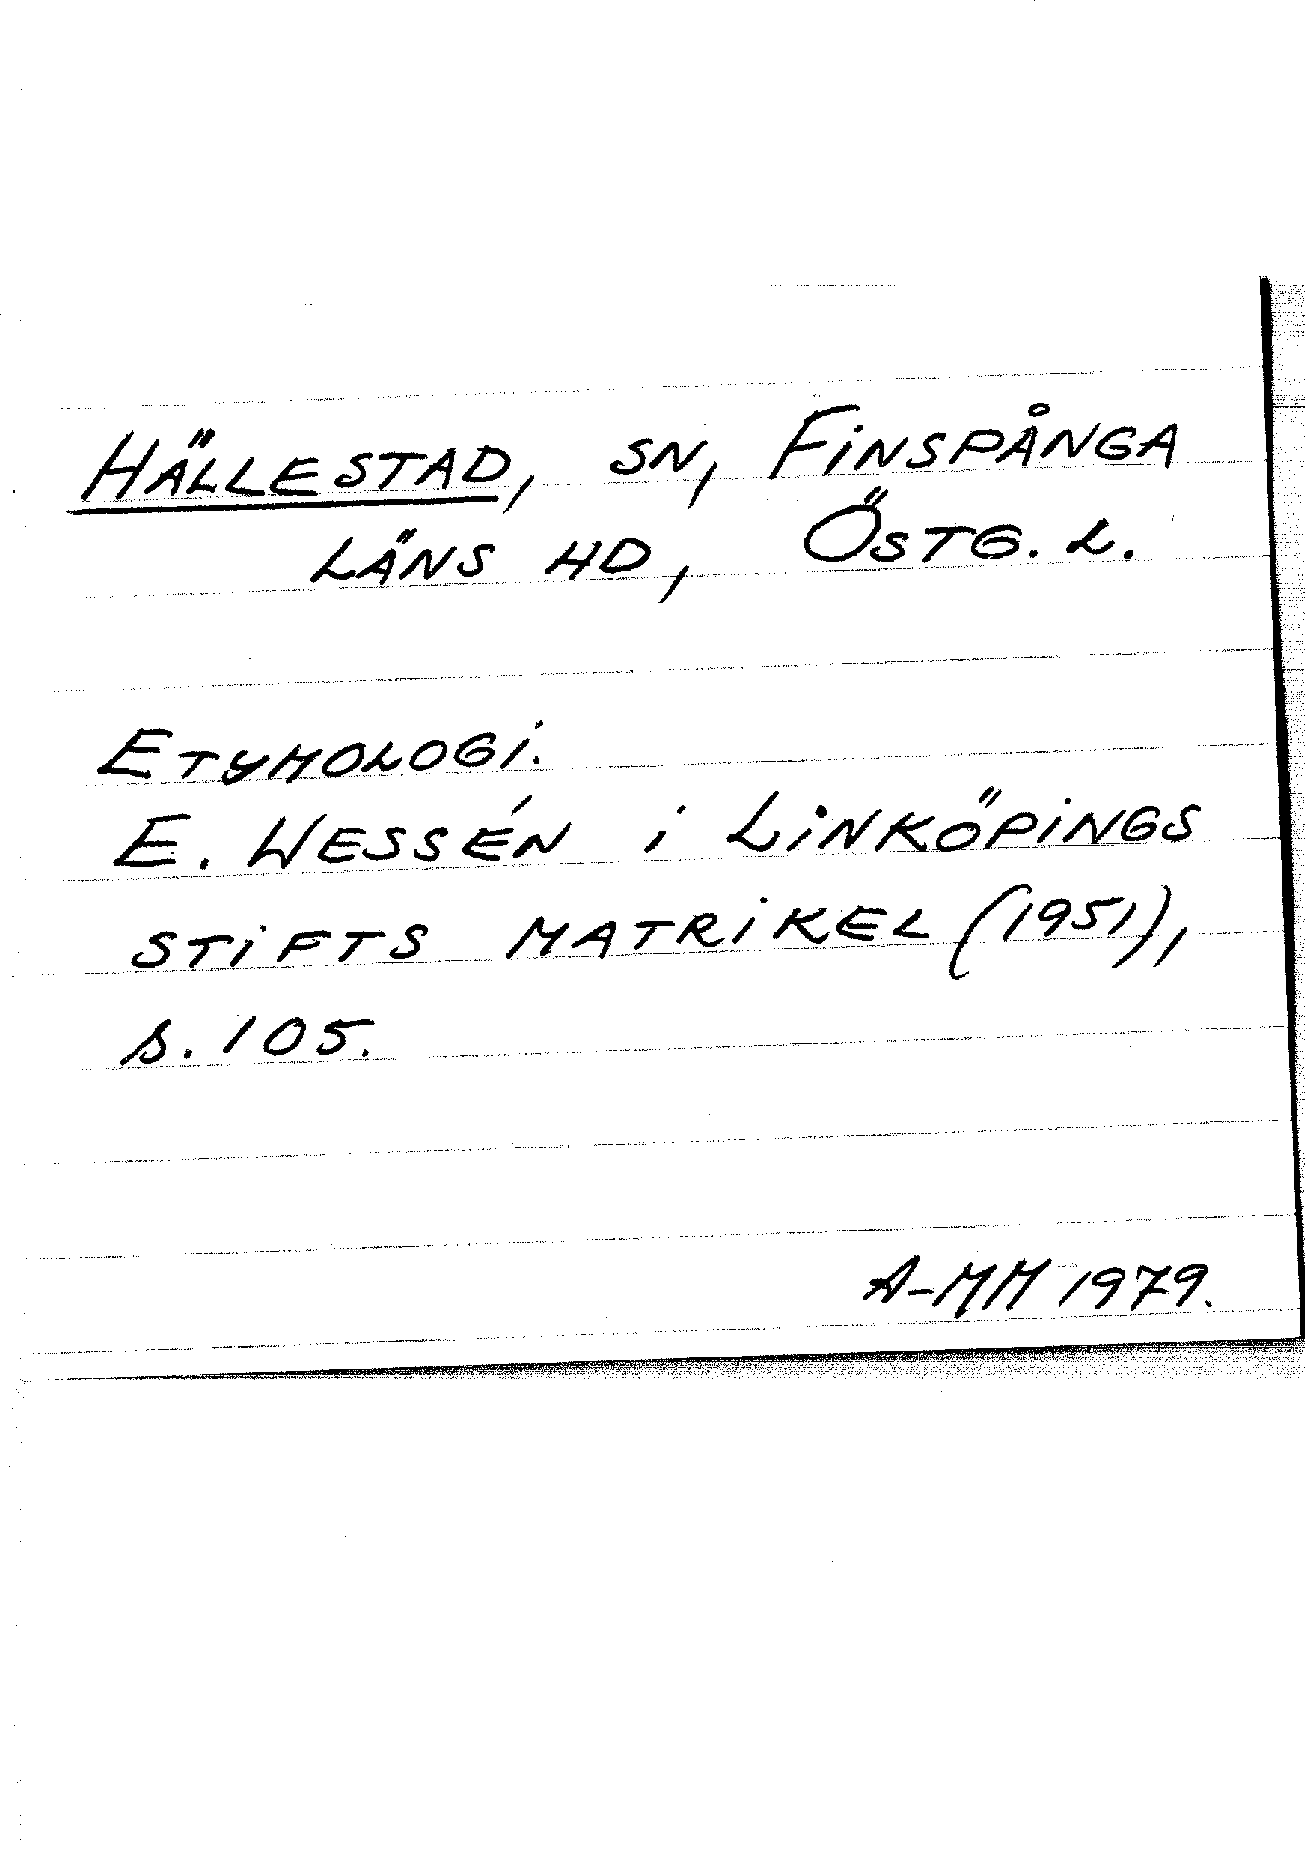 HÄLLESTAD, SN, FINSPÅNGA
LÄNS HD, ÖSTG. L.
ETYMOLOGI.
E. WESSÉN i LINKÖPINGS
STIFTS MATRIKEL (1951),
s. 105.
A-MM 1979.